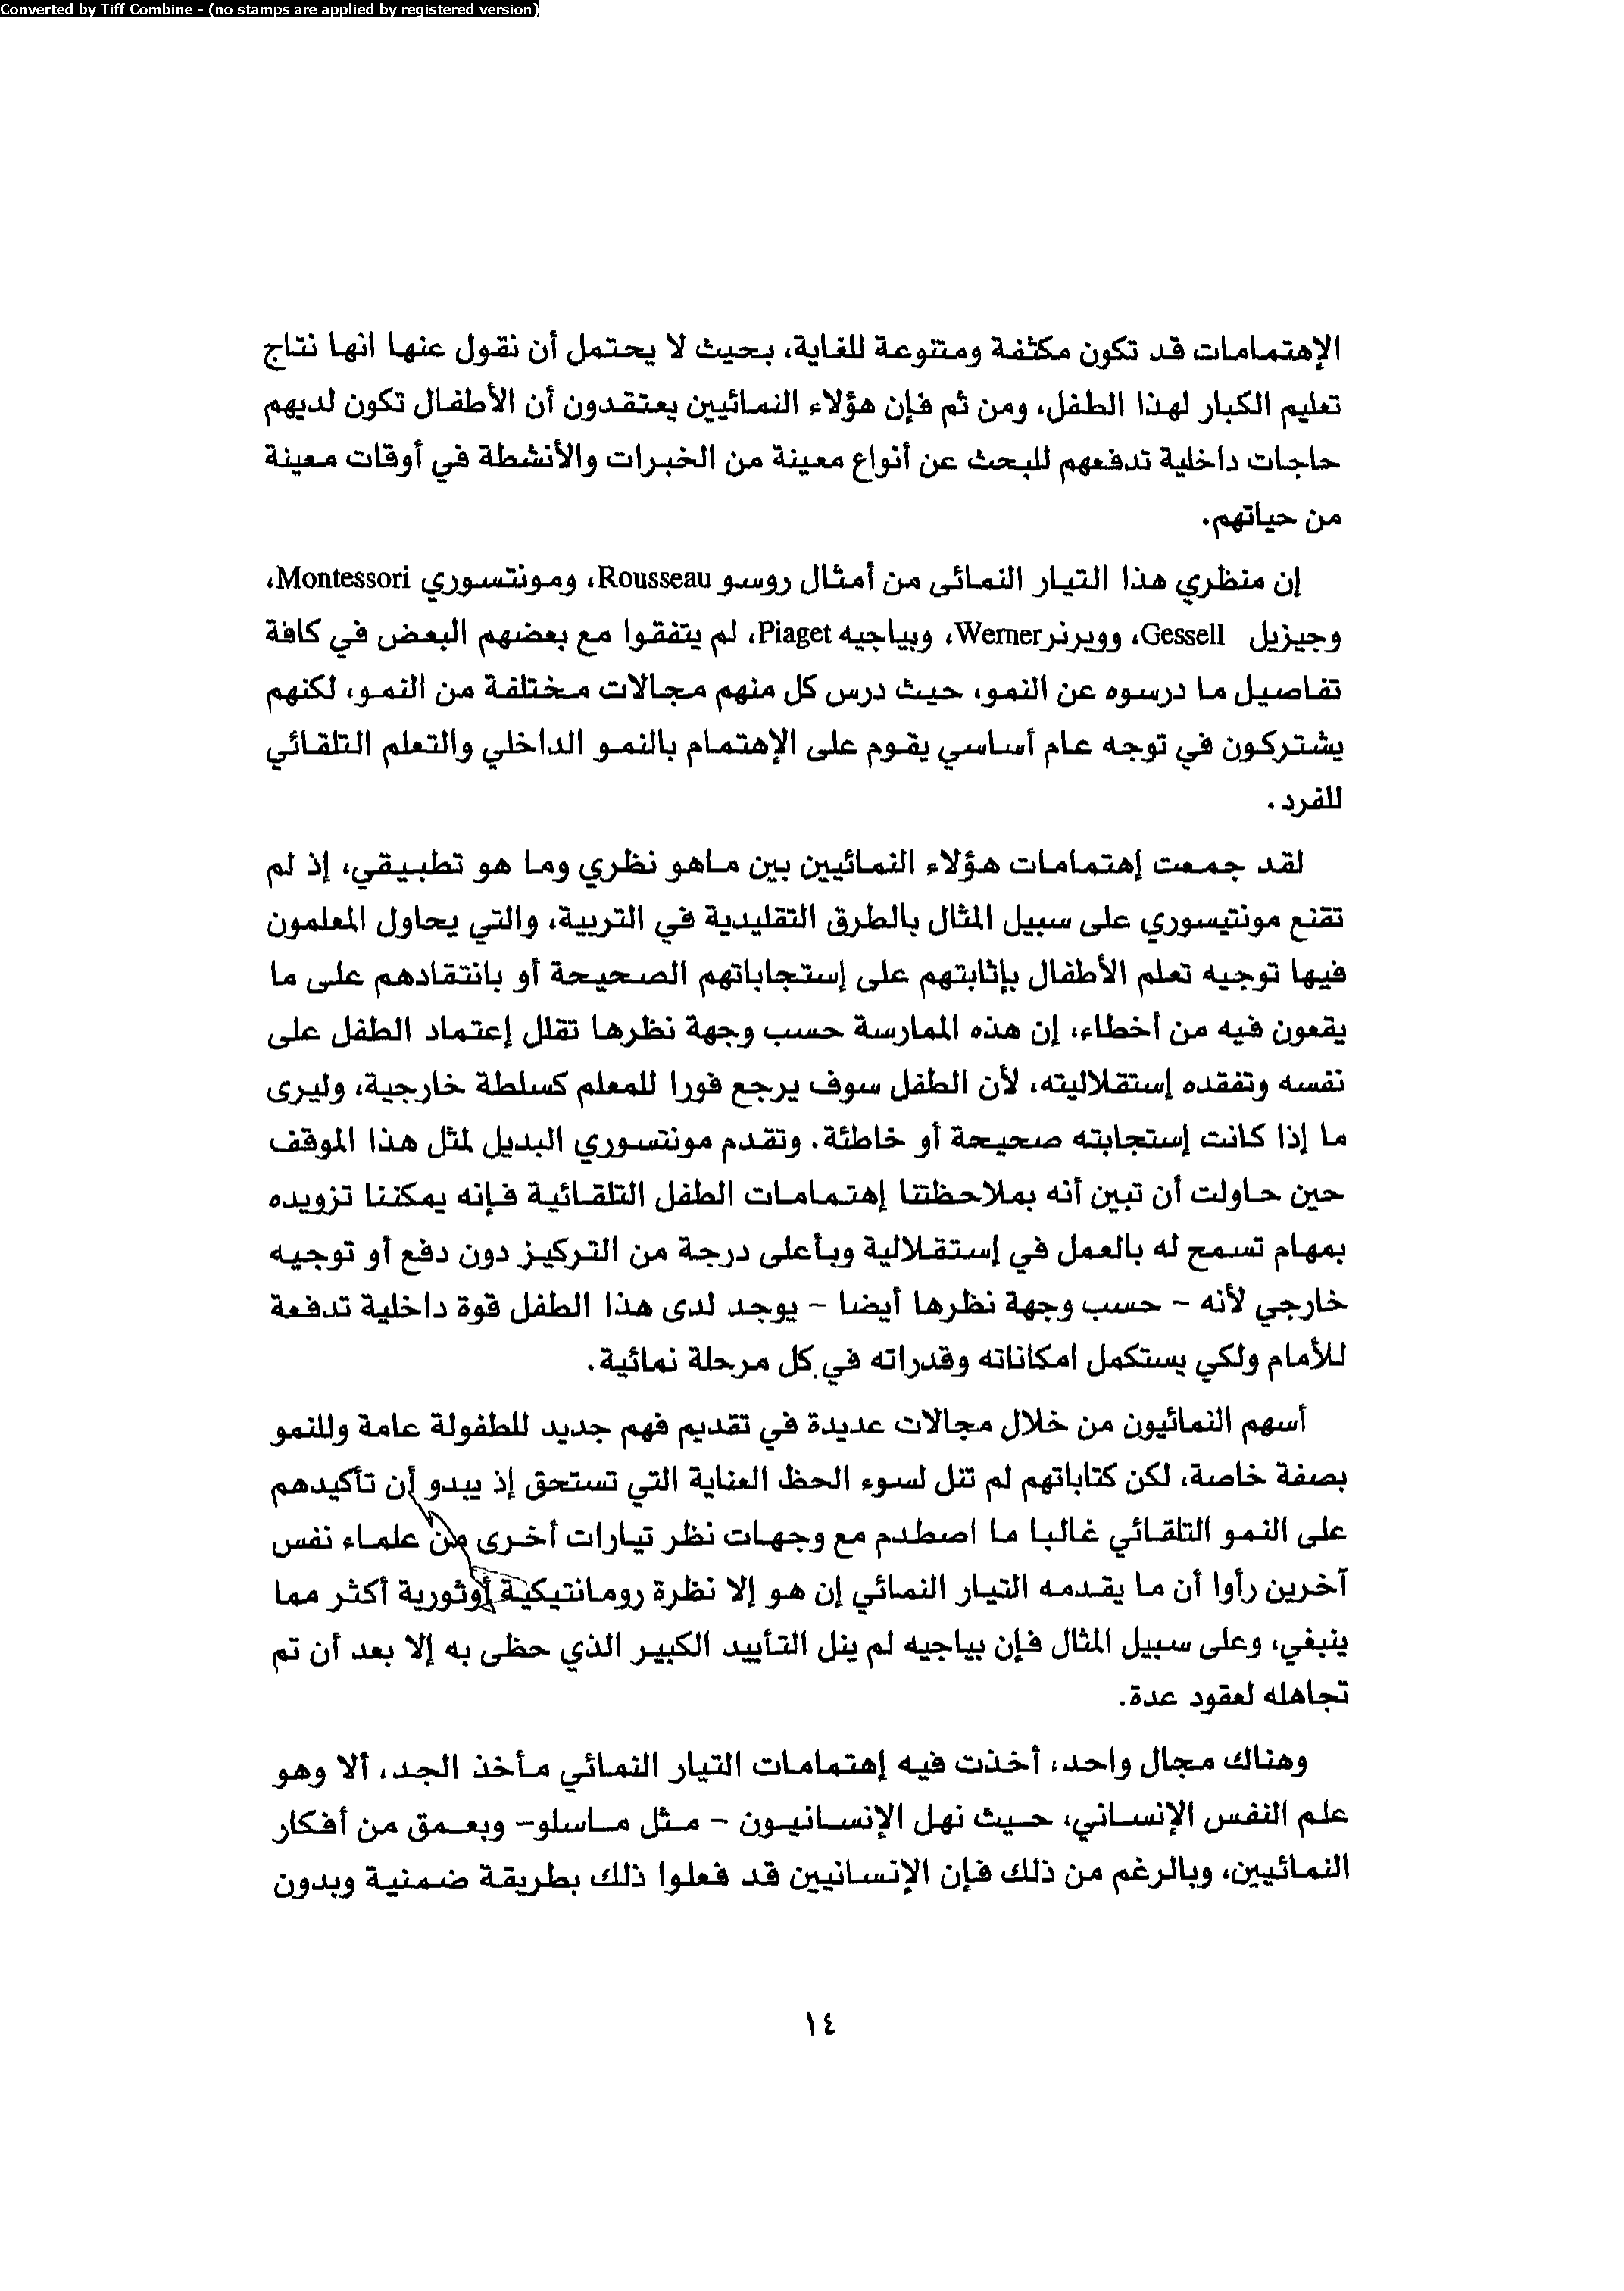 Converted by Tiff Combine - (no stamps are applied by registered version)
الإهتمامات قد تكون مكثفة ومتنوعة للغاية، بحيث لا يحتمل أن نقول عنها انها نتاج
تعليم الكبار لهذا الطفل، ومن ثم فإن هؤلاء النمائيين يعتقدون أن الأطفال تكون لديهم
حاجات داخلية تدفعهم للبحث عن أنواع معينة من الخبرات والأنشطة في أوقات معينة
من حياتهم.
إن منظري هذا التيار النمائى من أمثال روسو Rousseau، ومونتسوري Montessori،
وجيزيل Gessell، وويرنر Werner، وبياجيه Piaget، لم يتفقوا مع بعضهم البعض في كافة
تفاصيل ما درسوه عن النمو، حيث درس كل منهم مجالات مختلفة من النمو، لكنهم
يشتركون في توجه عام أساسي يقوم على الإهتمام بالنمو الداخلي والتعلم التلقائي
للفرد.
لقد جمعت إهتمامات هؤلاء النمائيين بين ماهو نظري وما هو تطبيقي، إذ لم
تقنع مونتيسوري على سبيل المثال بالطرق التقليدية في التربية، والتي يحاول المعلمون
فيها توجيه تعلم الأطفال بإثابتهم على إستجاباتهم الصحيحة أو بانتقادهم على ما
يقعون فيه من أخطاء، إن هذه الممارسة حسب وجهة نظرها تقلل إعتماد الطفل على
نفسه وتفقده إستقلاليته، لأن الطفل سوف يرجع فورا للمعلم كسلطة خارجية، وليرى
ما إذا كانت إستجابته صحيحة أو خاطئة. وتقدم مونتسوري البديل لمثل هذا الموقف
حين حاولت أن تبين أنه بملاحظتنا إهتمامات الطفل التلقائية فإنه يمكننا تزويده
بمهام تسمح له بالعمل في إستقلالية وبأعلى درجة من التركيز دون دفع أو توجيه
خارجي لأنه - حسب وجهة نظرها أيضا - يوجد لدى هذا الطفل قوة داخلية تدفعة
للأمام ولكي يستكمل امكاناته وقدراته في كل مرحلة نمائية.
أسهم النمائيون من خلال مجالات عديدة في تقديم فهم جديد للطفولة عامة وللنمو
بصفة خاصة، لكن كتاباتهم لم تنل لسوء الحظ العناية التي تستحق إذ يبدو أن تأكيدهم
على النمو التلقائي غالبا ما اصطدم مع وجهات نظر تيارات أخرى من علماء نفس
آخرين رأوا أن ما يقدمه التيار النمائي إن هو إلا نظرة رومانتيكية أوثورية أكثر مما
ينبغي، وعلى سبيل المثال فإن بياجيه لم ينل التأييد الكبير الذي حظى به إلا بعد أن تم
تجاهله لعقود عدة.
وهناك مجال واحد، أخذت فيه إهتمامات التيار النمائي مأخذ الجد، ألا وهو
علم النفس الإنساني، حيث نهل الإنسانيون - مثل ماسلو- وبعمق من أفكار
النمائيين، وبالرغم من ذلك فإن الإنسانيين قد فعلوا ذلك بطريقة ضمنية وبدون
١٤